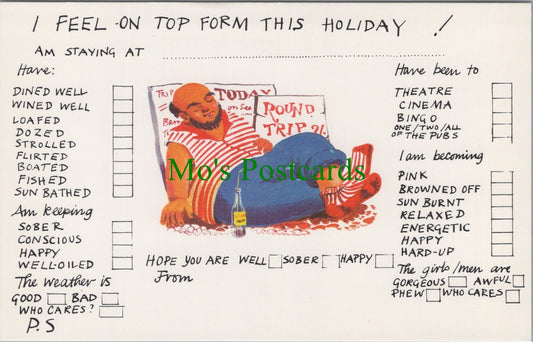 I FEEL ON TOP FORM THIS HOLIDAY !
AM STAYING AT
Have:
DINED WELL
WINED WELL
LOAFED
DOZED
STROLLED
FLIRTED
BOATED
FISHED
SUN BATHED
Am keeping
SOBER
CONSCIOUS
HAPPY
WELL-OILED
The weather is
GOOD BAD
WHO CARES?
P.S
TRIP TODAY
on Sea
ROUND
TRIP 2/-
Mo's Postcards
HOPE YOU ARE WELL SOBER HAPPY
From
Have been to
THEATRE
CINEMA
BINGO
ONE/TWO/ALL
OF THE PUBS
I am becoming
PINK
BROWNED OFF
SUN BURNT
RELAXED
ENERGETIC
HAPPY
HARD-UP
The girls/men are
GORGEOUS AWFUL
PHEW WHO CARES